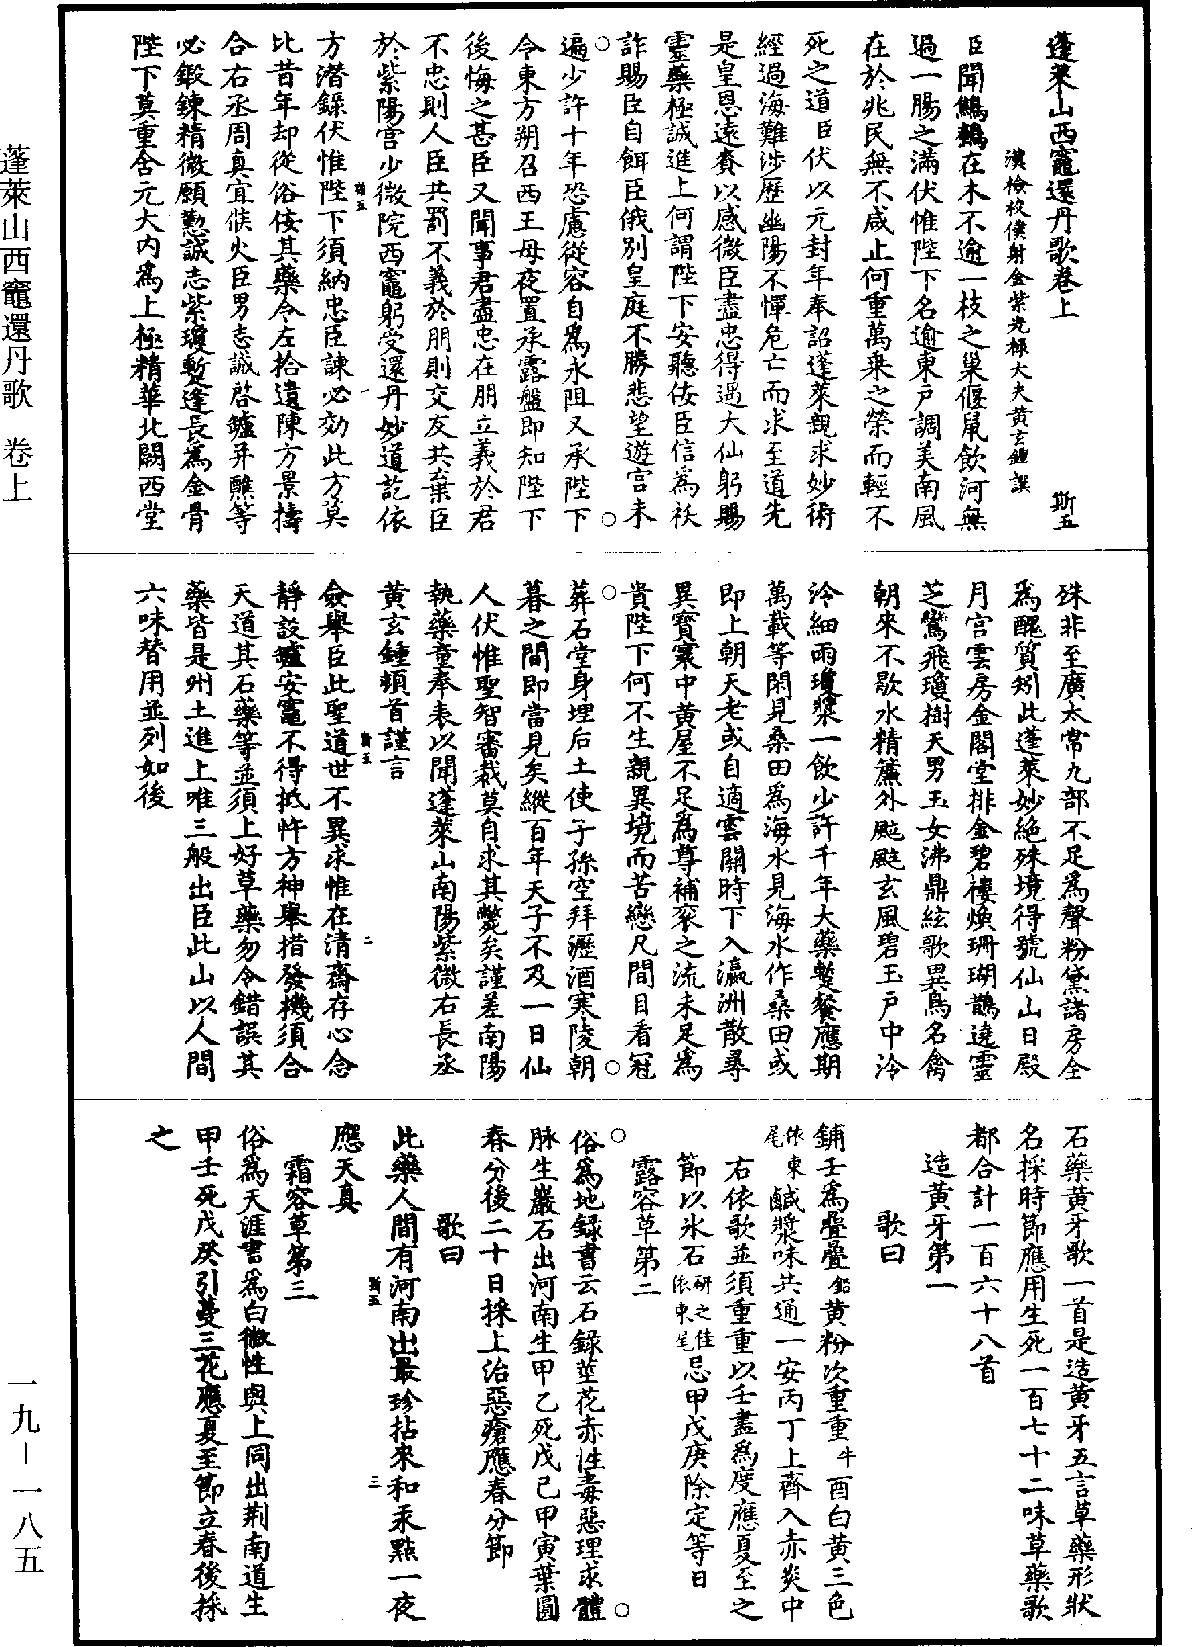 蓬萊山西竈還丹歌卷上　斯五
漢檢校僕射金紫光祿大夫黃玄鍾譔
臣聞鷦鷯在木不逾一枝之巢偃鼠飲河無
過一腸之滿伏惟陛下名逾東戶調美南風
在於兆民無不咸止何重萬乘之榮而輕不
死之道臣伏以元封年奉詔蓬萊親求妙術
經過海難涉歷幽陽不憚危亡而求至道先
是皇恩遠賚以感微臣盡忠得遇大仙躬賜
靈藥極誠進上何謂陛下安聽佞臣信為祅
詐賜臣自餌臣俄別皇庭不勝悲望遊宮未
遍少許十年恐慮從容自為永阻又承陛下
令東方朔召西王母夜置承露盤即知陛下
後悔之甚臣又聞事君盡忠在朋立義於君
不忠則人臣共罰不義於朋則交友共棄臣
於紫陽宮少微院西竈躬受還丹妙道訖依
方潛錄伏惟陛下須納忠臣諫必効此方莫
比昔年却從俗佞其藥令左拾遺陳方景擣
合右丞周真宜候火臣男志誠啓鑪并醮等
必鍛鍊精微願懃誠志紫瓊蹔逢長為金骨
陛下莫重含元大內為上極精華北闕西堂
殊非至廣太常九部不足為聲粉黛諸房全
為醜質矧此蓬萊妙絕殊境得號仙山日殿
月宮雲房金閣堂排金碧樓煥珊瑚鵲遶靈
芝鸞飛瓊樹天男玉女沸鼎絃歌異鳥名禽
朝來不歇水精簾外颸颸玄風碧玉戶中泠
泠細雨瓊漿一飲少許千年大藥蹔餐應期
萬載等閑見桑田為海水見海水作桑田或
即上朝天老或自適雲關時下入瀛洲散尋
異寶寰中黃屋不足為尊補袞之流未足為
貴陛下何不生親異境而苦戀凡間目看冠
葬石堂身埋后土使子孫空拜瀝酒寒陵朝
暮之間即當見矣縱百年天子不及一日仙
人伏惟聖智審裁莫自求其斃矣謹差南陽
執藥童奉表以聞蓬萊山南陽紫微右長丞
黃玄鍾頓首謹言
僉舉臣此聖道世不異求惟在清齋存心念
靜設鑪安竈不得抵忤方神舉措發機須合
天道其石藥等並須上好草藥勿令錯誤其
藥皆是州土進上唯三般出臣此山以人間
六味替用並列如後
石藥黃牙歌一首是造黃牙五言草藥形狀
名採時節應用生死一百七十二味草藥歌
都合計一百六十八首
造黃牙第一
歌曰
鋪壬為疊疊鉛黃粉次重重牛酉白黃三色
依東尾鹹漿味共通一安丙丁上齊入赤炎中
右依歌並須重重以壬盡為度應夏至之
節以氷石研之佳依東尾忌甲戊庚除定等日
露容草第二
俗為地錄書云石錄莖花赤性毒惡理求體
脉生巖石出河南生甲乙死戊己甲寅葉圓
春分後二十日採上治惡瘡應春分節
歌曰
此藥人間有河南出最珍拈來和汞點一夜
應天真
霜容草第三
俗為天涯書為白微性與上同出荆南道生
甲壬死戊癸引蔓三花應夏至節立春後採
之
斯五
一
斯五
二
斯五
三
蓬萊山西竈還丹歌　卷上
一九－一八五